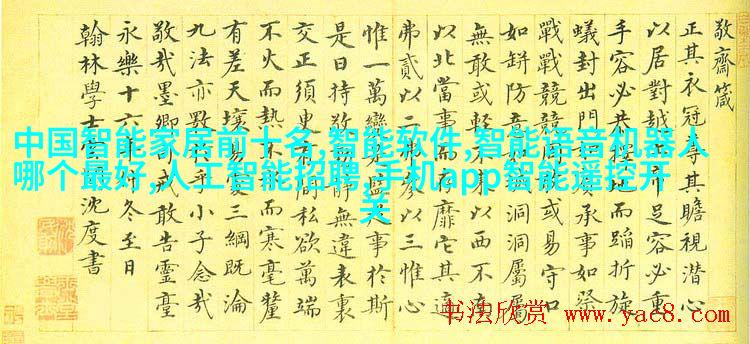 敬齋箴
正其衣冠尊其瞻視潛心
以居對越足容必重
手容必共擇而蹈折旋
蟻封出門承事如祭
戰戰兢兢罔或易守口
如缾防意洞洞屬屬
無敢或輕不以西不
以北當事而靡它其適
弗貳以二弗參以三惟心
惟一萬變是監事於斯
是日持敬靜無違表裏
交正須臾有間私欲萬端
不火而熱不而寒毫釐
有差天壤易三綱既淪
九法亦斁乎小子念哉
敬哉墨卿司戒敢告靈臺
永樂十六年冬至日
翰林學士沈度書
中国智能家居前十名,智能软件,智能语音机器人
哪个最好,人工智能招聘,手机app智能遥控开
关
书法欣赏
www.yac8.com